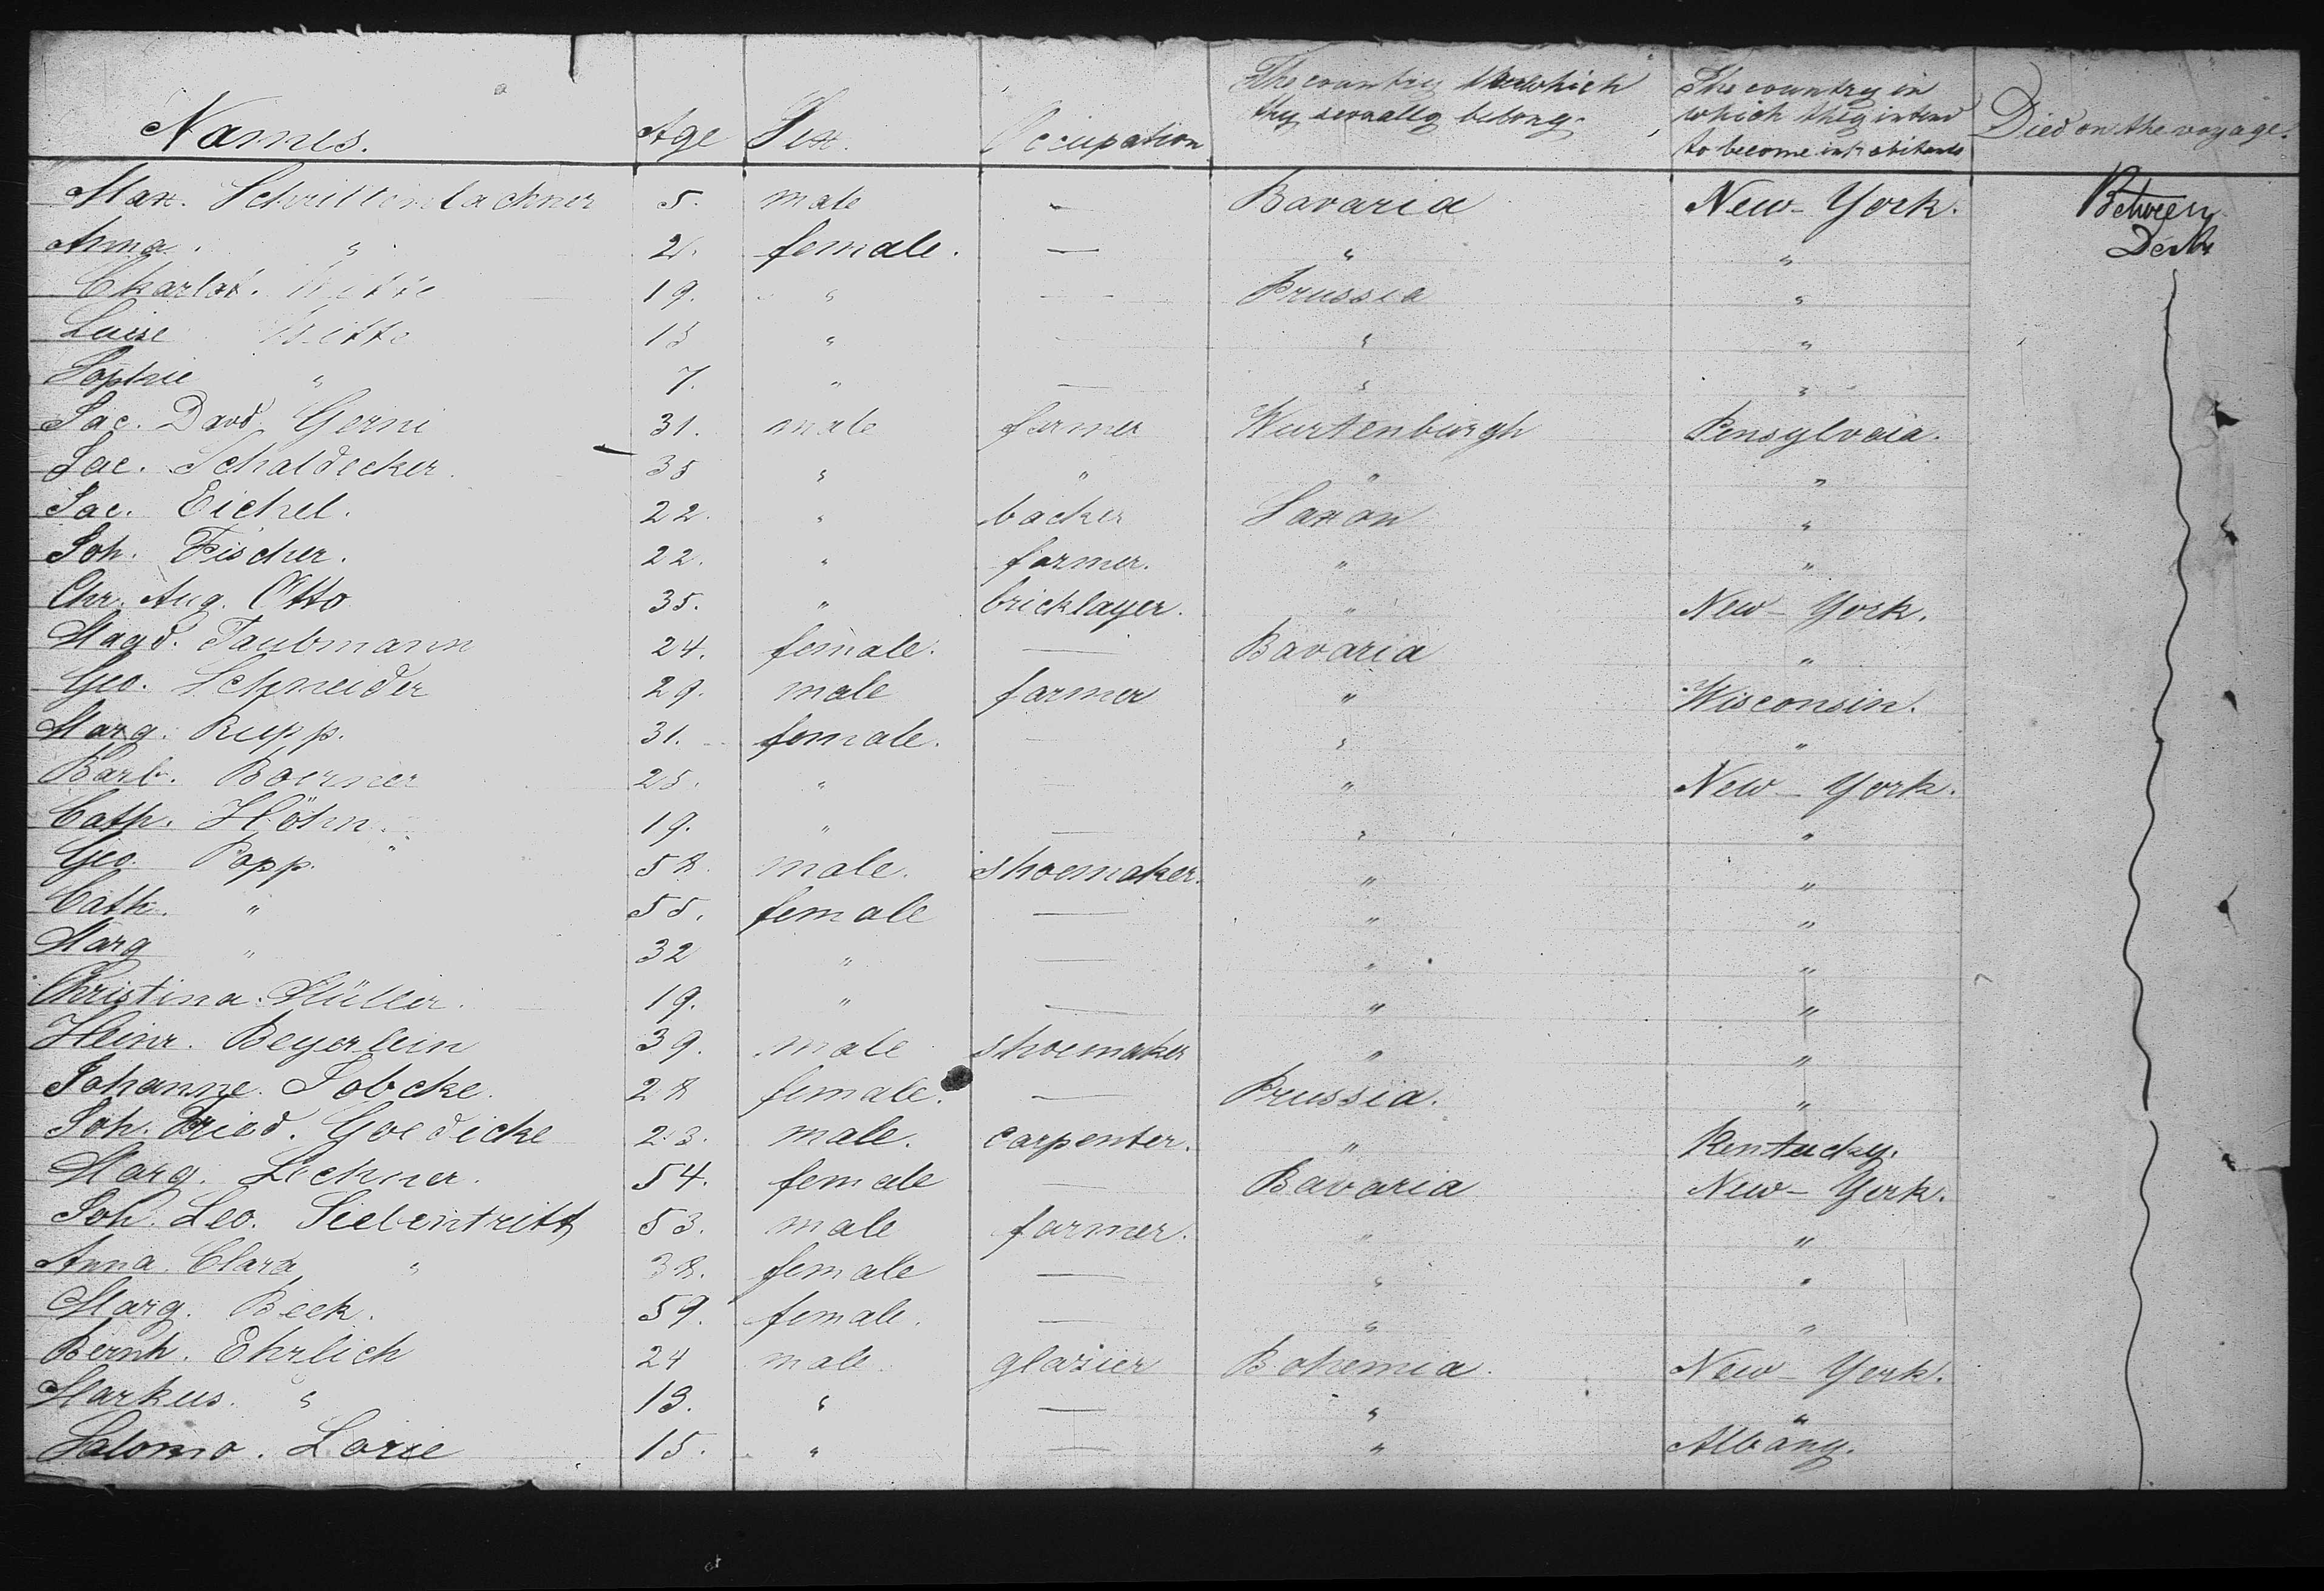 Names. Age Sex. Occupation The country to which they severally belong. The country in which they intend to become inhabitants Died on the voyage.
Max. 5. male — Bavaria New-York. Between
Anna. " 2. female. — " " Deck
19. " — Prussia "
Luise Witte 15 " — " "
Sophie " 7. " — " "
Jac. Davd. Gerni 31. male farmer Wurtenburgh Pensylvaia.
Jac. Schaldecker. 35 " " " "
Jac. Eichel. 22. " backer Saxon "
Joh. Fischer. 22. " farmer. " "
Chr. Aug. Otto 35. " bricklayer. " New-York.
Magd. Taubmann 24. female. — Bavaria "
Geo. Schneider 29. male farmer " Wisconsin.
Marg. Rupp. 31. female. — " "
Barb. Boerner 25. " — " New-York.
Cath. Höhn. 19. " — " "
Geo. Popp. 58. male. shoemaker. " "
Cath. " 55. female — " "
Marg " 32 " — " "
Christina Müller. 19. " — " "
Heinr. Beyerlein 39. male shoemaker " "
Johanne. Jobcke. 28 female. — Prussia. "
Joh. Fried. Goedicke 23. male. carpenter. " Kentucky.
Marg. Lechner. 54. female — Bavaria New-York.
Joh. Leo. Siebentritt 53. male farmer. " "
Anna. Clara " 38. female — " "
Marg. Beck. 59. female. — " "
Bernh. Ehrlich 24 male. glazier Bohemia. New-York.
Markus. " 13. " — " "
Salomo. Lorie 15. " — " Albany.